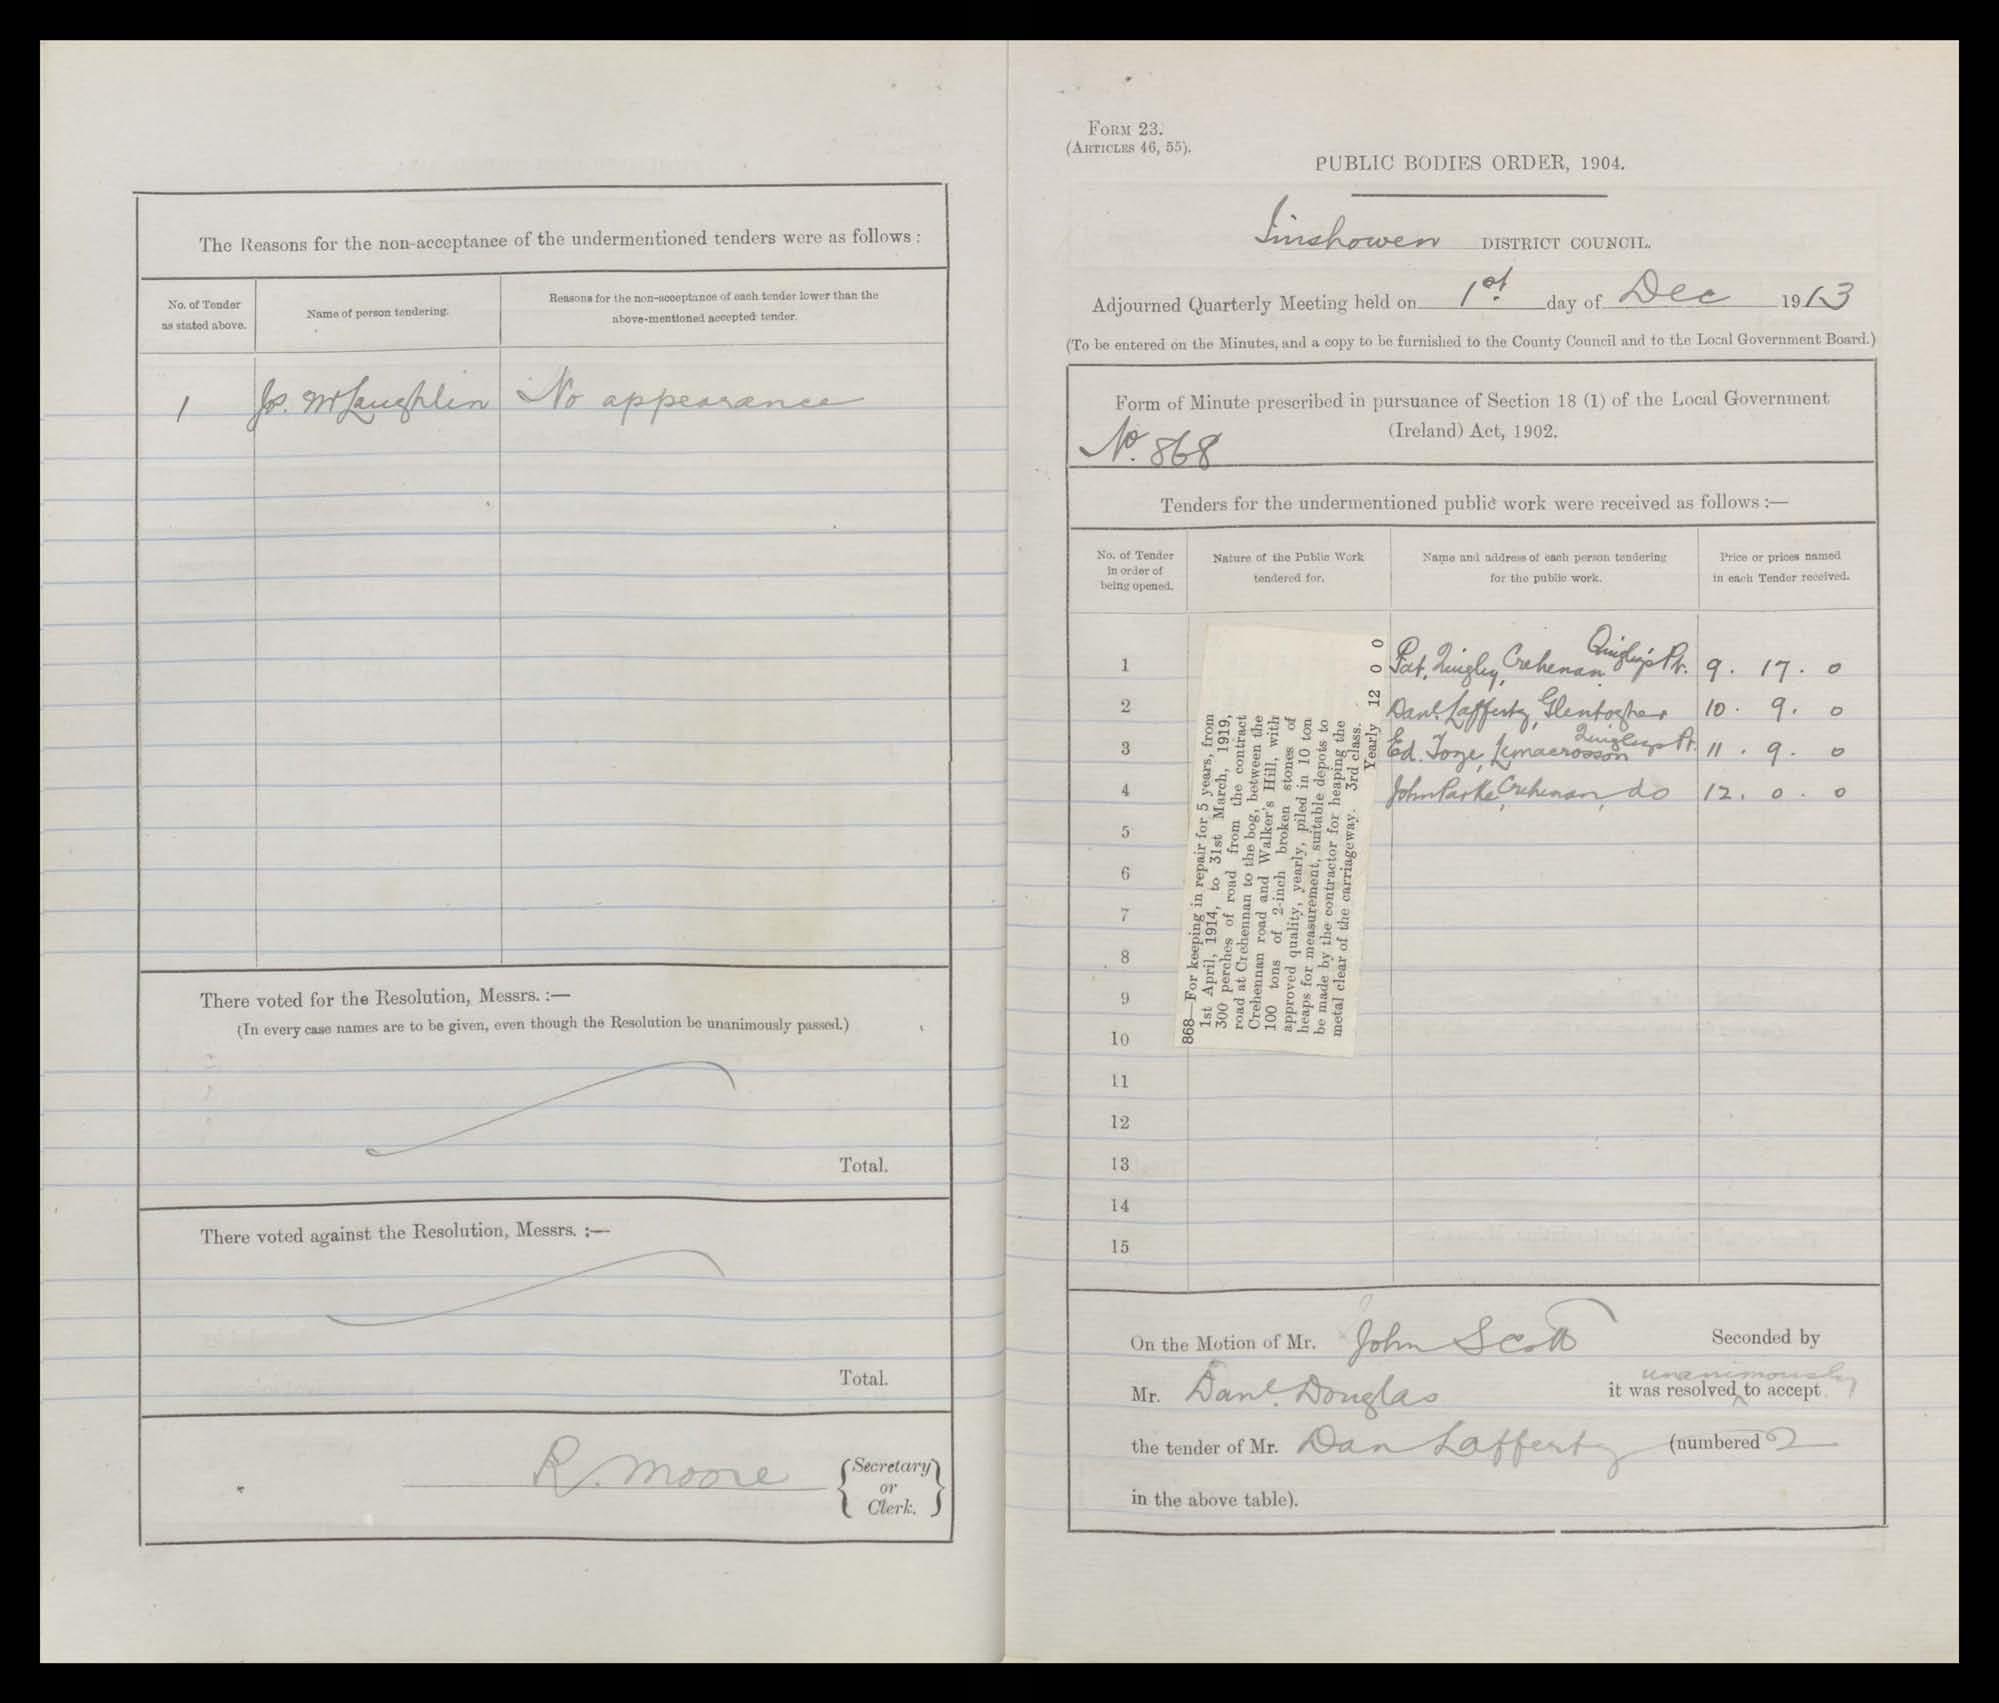 The Reasons for the non-acceptance of the undermentioned tenders were as follows :
No. of Tender
as stated above.
Name of person tendering.
Reasons for the non-acceptance of each tender lower than the
above-mentioned accepted tender.
1 Js. McLaughlin No appearance
There voted for the Resolution, Messrs. :—
(In every case names are to be given, even though the Resolution be unanimously passed.)
Total.
There voted against the Resolution, Messrs. :—
Total.
R. Moore
Secretary
or
Clerk.
Form 23.
(Articles 46, 55).
PUBLIC BODIES ORDER, 1904.
Inishowen DISTRICT COUNCIL.
Adjourned Quarterly Meeting held on 1st day of Dec 1913
(To be entered on the Minutes, and a copy to be furnished to the County Council and to the Local Government Board.)
Form of Minute prescribed in pursuance of Section 18 (1) of the Local Government
(Ireland) Act, 1902.
No. 868
Tenders for the undermentioned public work were received as follows :—
No. of Tender
in order of
being opened.
Nature of the Public Work
tendered for.
Name and address of each person tendering
for the public work.
Price or prices named
in each Tender received.
868—For keeping in repair for 5 years, from
1st April, 1914, to 31st March, 1919,
300 perches of road from the contract
road at Crehennan to the bog, between the
Crehennan road and Walker's Hill, with
100 tons of 2-inch broken stones of
approved quality, yearly, piled in 10 ton
heaps for measurement, suitable depots to
be made by the contractor for heaping the
metal clear of the carriageway. 3rd class.
Yearly 12 0 0
1 Pat. Quigley, Crehenan Quigley's Pt. 9 . 17 . 0
2 Danl. Lafferty, Glentogher 10 . 9 . 0
3 Ed. Toye, Quigleys Pt. 11 . 9 . 0
4 John Parke, Crehenan, do 12 . 0 . 0
5
6
7
8
9
10
11
12
13
14
15
On the Motion of Mr. John Scott Seconded by
Mr. Danl. Douglas it was resolved unanimously to accept
the tender of Mr. Dan Lafferty (numbered 2
in the above table).